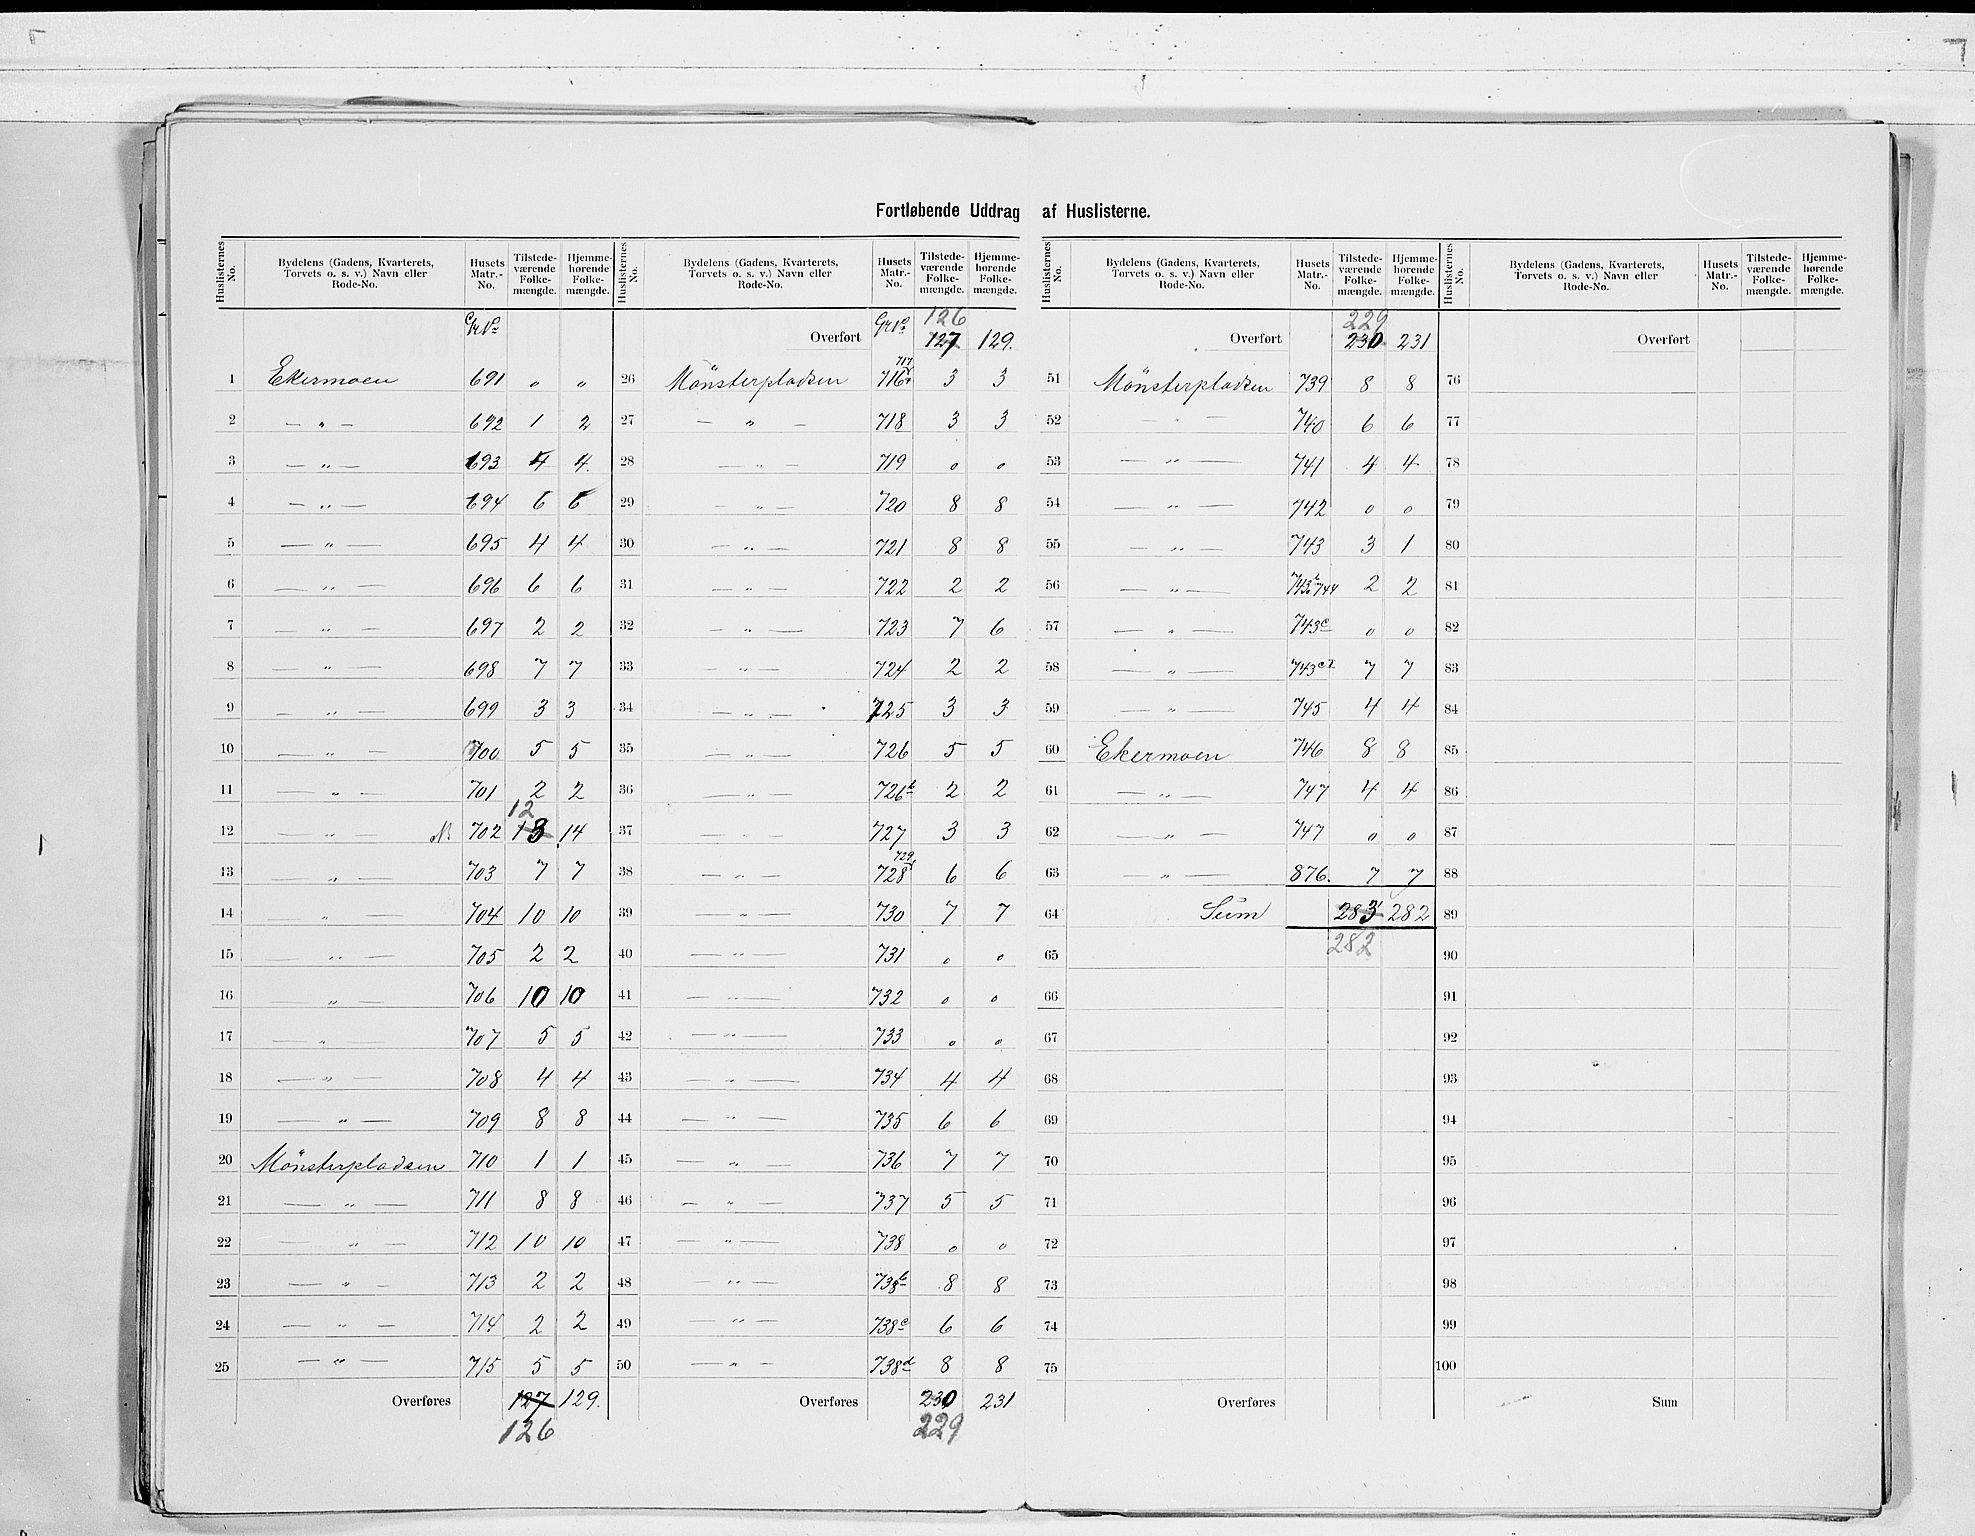 Fortløbende Uddrag af Huslisterne.
Huslisternes No. Bydelens (Gadens, Kvarterets, Torvets o. s. v.) Navn eller Rode-No. Husets Matr.-No. Tilstedeværende Folkemængde. Hjemmehørende Folkemængde.
Gr No
1 Ekermoen 691 " "
2 — " — 692 1 2
3 — " — 693 4 4.
4 — " — 694 6 6
5 — " — 695 4 4
6 — " — 696 6 6
7 — " — 697 2 2
8 — " — 698 7 7
9 — " — 699 3 3
10 — " — 700 5 5
11 — " — 701 2 2
12
12 — " — 702 13 14
13 — " — 703 7 7
14 — " — 704 10 10
15 — " — 705 2 2
16 — " — 706 10 10
17 — " — 707 5 5
18 — " — 708 4 4
19 — " — 709 8 8
20 Mönsterpladsen 710 1 1
21 — " — 711 8 8
22 — " — 712 10 10
23 — " — 713 2 2
24 — " — 714 2 2
25 — " — 715 5 5
Overføres 127 129.
126
Huslisternes No. Bydelens (Gadens, Kvarterets, Torvets o. s. v.) Navn eller Rode-No. Husets Matr.-No. Tilstedeværende Folkemængde. Hjemmehørende Folkemængde.
126
Overført Gr No 127 129.
717
26 Mönsterpladsen 716 3 3
27 — " — 718 3 3
28 — " — 719 0 0
29 — " — 720 8 8
30 — " — 721 8 8
31 — " — 722 2 2
32 — " — 723 7 6
33 — " — 724 2 2
34 — " — 725 3 3
35 — " — 726 5 5
36 — " — 726b 2 2
37 — " — 727 3 3
729
38 — " — 728 6 6
39 — " — 730 7 7
40 — " — 731 0 0
41 — " — 732 0 0
42 — " — 733 0 0
43 — " — 734 4 4
44 — " — 735 6 6
45 — " — 736 7 7
46 — " — 737 5 5
47 — " — 738 0 0
48 — " — 738b 8 8
49 — " — 738c 6 6
50 — " — 738d 8 8
Overføres 230 231
229
Huslisternes No. Bydelens (Gadens, Kvarterets, Torvets o. s. v.) Navn eller Rode-No. Husets Matr.-No. Tilstedeværende Folkemængde. Hjemmehørende Folkemængde.
229
Overført 230 231
51 Mönsterpladsen 739 8 8
52 — " — 740 6 6
53 — " — 741 4 4
54 — " — 742 0 0
55 — " — 743 3 1
56 — " — 743b 744 2 2
57 — " — 743c 0 0
58 — " — 743c1 7 7
59 — " — 745 4 4
60 Ekermoen 746 8 8
61 — " — 747 4 4
62 — " — 747 0 0
63 — " — 876. 7 7
64 Sum 283 282
65 282
66
67
68
69
70
71
72
73
74
75
Overføres
Huslisternes No. Bydelens (Gadens, Kvarterets, Torvets o. s. v.) Navn eller Rode-No. Husets Matr.-No. Tilstedeværende Folkemængde. Hjemmehørende Folkemængde.
Overført
76
77
78
79
80
81
82
83
84
85
86
87
88
89
90
91
92
93
94
95
96
97
98
99
100
Sum